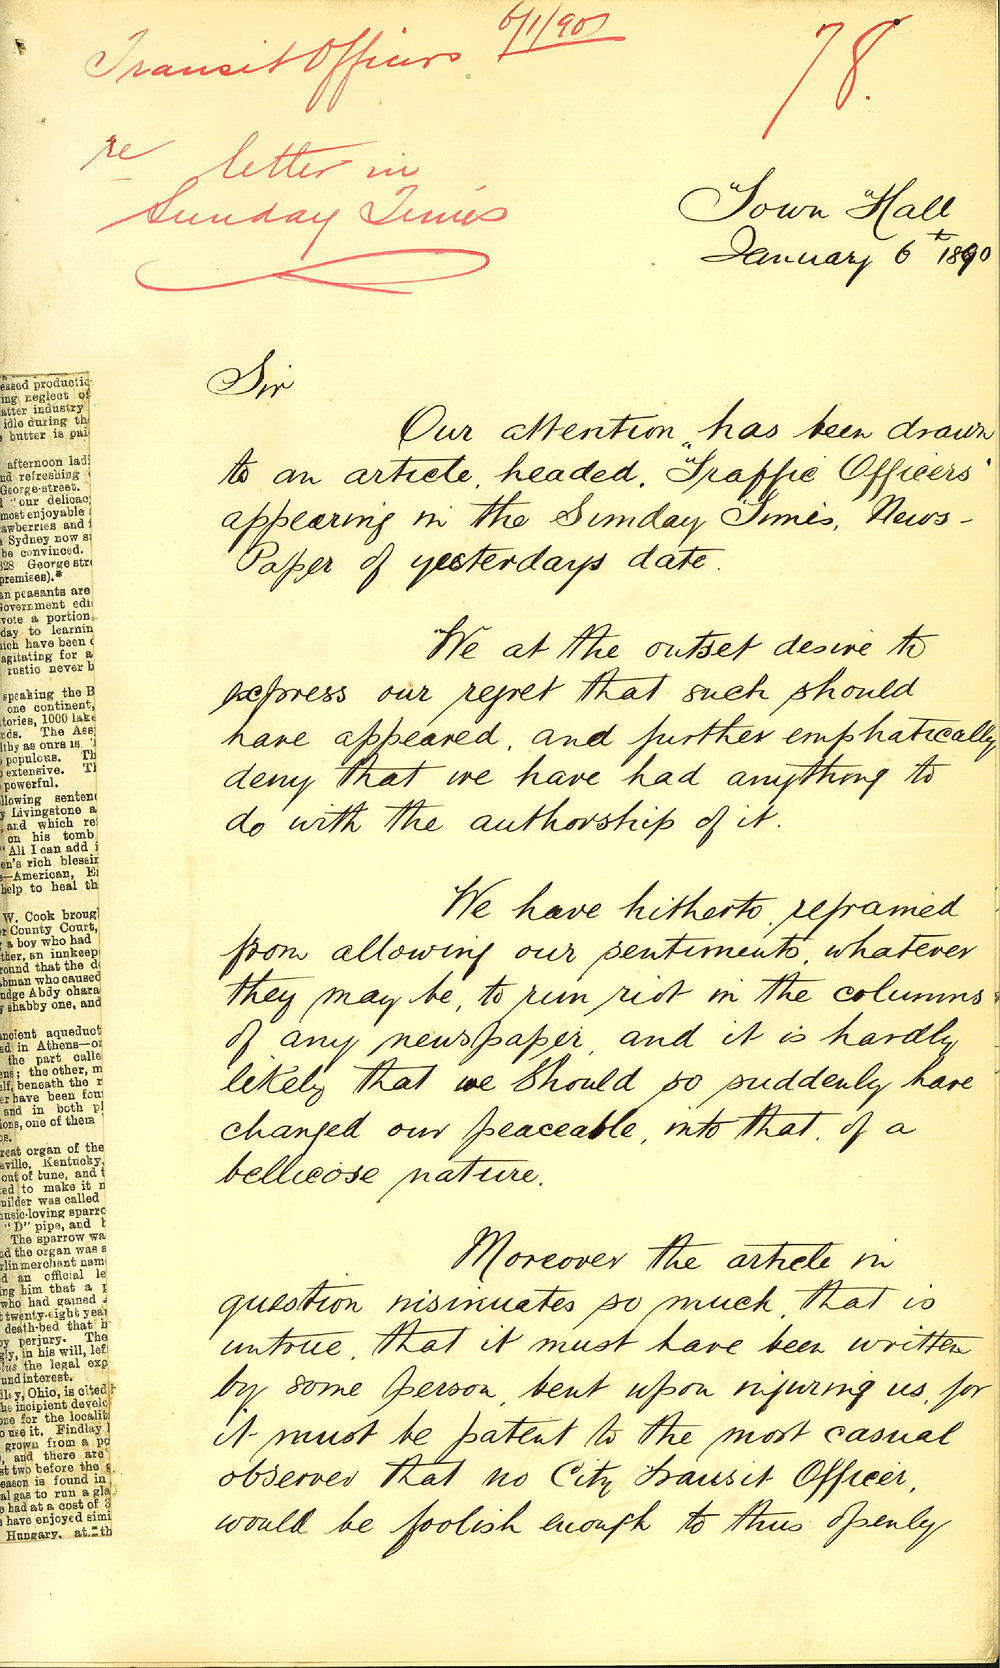 Transit Officers 6/1/90
78.
re letter in
Sunday Times
Town Hall
January 6th 1890
Sir
Our attention, has been drawn
to an article, headed, "Traffic Officers"
appearing in the Sunday Times, News-
Paper of yesterdays date.
We at the outset desire to
express our regret that such should
have appeared, and further emphatically
deny that we have had anything to
do with the authorship of it.
We have hitherto, refrained
from allowing our sentiments, whatever
they may be, to run riot in the columns
of any newspaper, and it is hardly
likely that we should so suddenly have
changed our peaceable, into that, of a
bellicose nature.
Moreover the article in
question insinuates so much, that is
untrue, that it must have been written
by some person, bent upon injuring us, for
it must be patent to the most casual
observer that no City Transit Officer,
would be foolish enough to thus openly
eased producti
ing neglect of
atter industry
idle during th
butter is pai
afternoon ladi
nd refreshing
George-street.
"our delicac
most enjoyable
awberries and
Sydney now s
be convinced.
328 George stre
premises).*
an peasants are
Government edi
vote a portion
day to learnin
hich have been
agitating for a
rustic never b
speaking the B
one continent,
tories, 1000 lake
rds. The Ass
lthy as ours is.
populous. Th
extensive. Ti
powerful.
llowing senten
y Livingstone a
, and which re
on his tomb
"All I can add i
en's rich blessin
—American, E
help to heal th
W. Cook broug
r County Court,
a boy who had
ther, an innkeep
round that the d
bman who caused
udge Abdy chara
y shabby one, and
ancient aqueduct
ed in Athens—o
the part calle
ens; the other, m
elf, beneath the r
er have been fou
and in both p
ions, one of them
reat organ of the
sville, Kentucky,
out of tune, and t
ed to make it n
uilder was called
music-loving sparro
"D" pipe, and h
The sparrow wa
nd the organ was a
rlin merchant nam
d an official le
ing him that a p
who had gained
twenty-eight year
death-bed that h
by perjury. The
gly, in his will, left
plus the legal exp
und interest.
dley, Ohio, is cited
he incipient develo
one for the localit
o use it. Findlay
grown from a po
, and there are
st two before the g
eason is found in
al gas to run a gla
e had at a cost of 3
have enjoyed simi
Hungary, at th